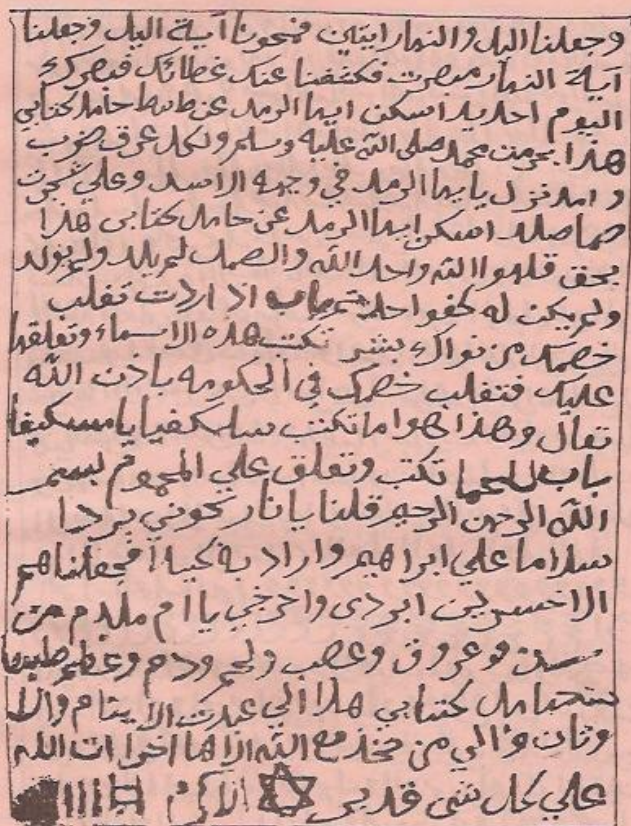 وجعلنا اليل والنهار ايتين فمحونا آية اليل وجعلنا
آية النهار مبصرت فكشفنا عنك غطائك فبصرك
اليوم احديد اسكن ايها الرمد عن حامل كتابي
هذا بحق من محمد صلى الله عليه وسلم ولكل عرق ضرب
و امد نزل يا يها الرمد في وجهه الاسد وعلي شجرت
اسكن ايها الرمد عن حامل كتابي هذا
بحق قلهوا الله واحد الله والصمد لم يلد ولم يولد
ولم يكن له كفوا احد باب اذا اردت تغلب
خصمك من نواك بشر تكتب هذه الاسماء وتعلقها
عليك فتغلب خصمك في الحكومه باذن الله
تعال وهذا هوا ما تكتب
باب للحما تكتب وتعلق علي المحموم بسم
الله الرحمن الرحيم قلنا يا نار كوني بردا
سلاما علي ابراهيم وارادو به كيدا فجعلناهم
الاخسرين ابردى واخرجي يا ام ملدم من
وعروق وعصب ولحم ودم وعظم
حامل كتابي هذا الي عبدت الاصنام والا
وثان والي من تخذ مع الله الاها اخر ان الله
علي كل شى قدير